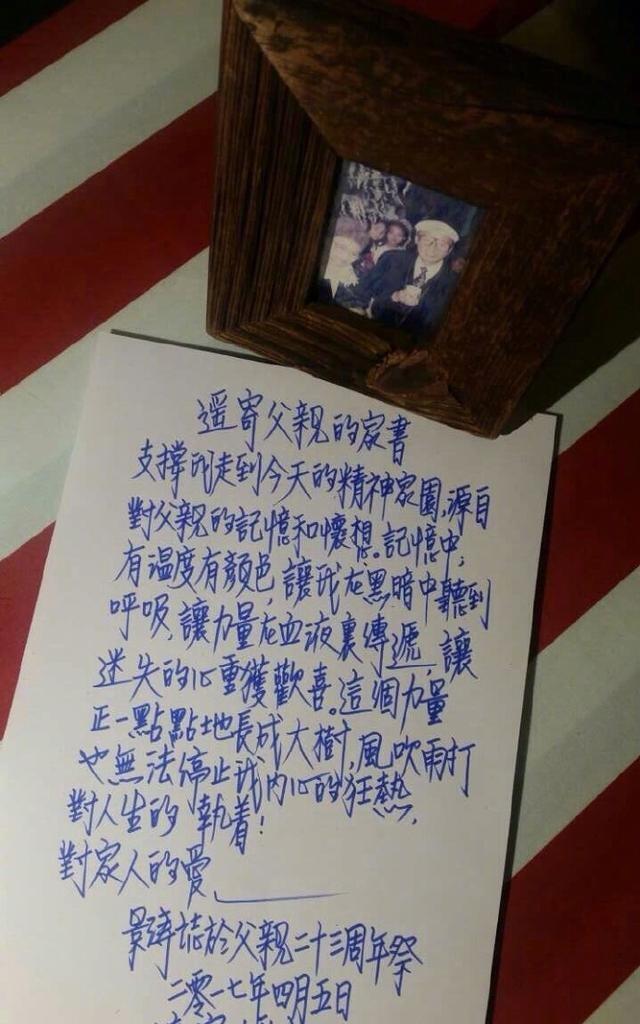 遥寄父親的家書
支撐我走到今天的精神家園,源自
對父親的記憶和懷想。記憶中,
有溫度有顏色,讓我在黑暗中聽到
呼吸,讓力量在血液裏傳遞,讓
迷失的心重獲歡喜。這個力量
正一點點地長成大樹,風吹雨打
也無法停止我內心的狂熱,
對人生的執着!
對家人的愛,
於父親二十三周年祭
二零一七年四月五日